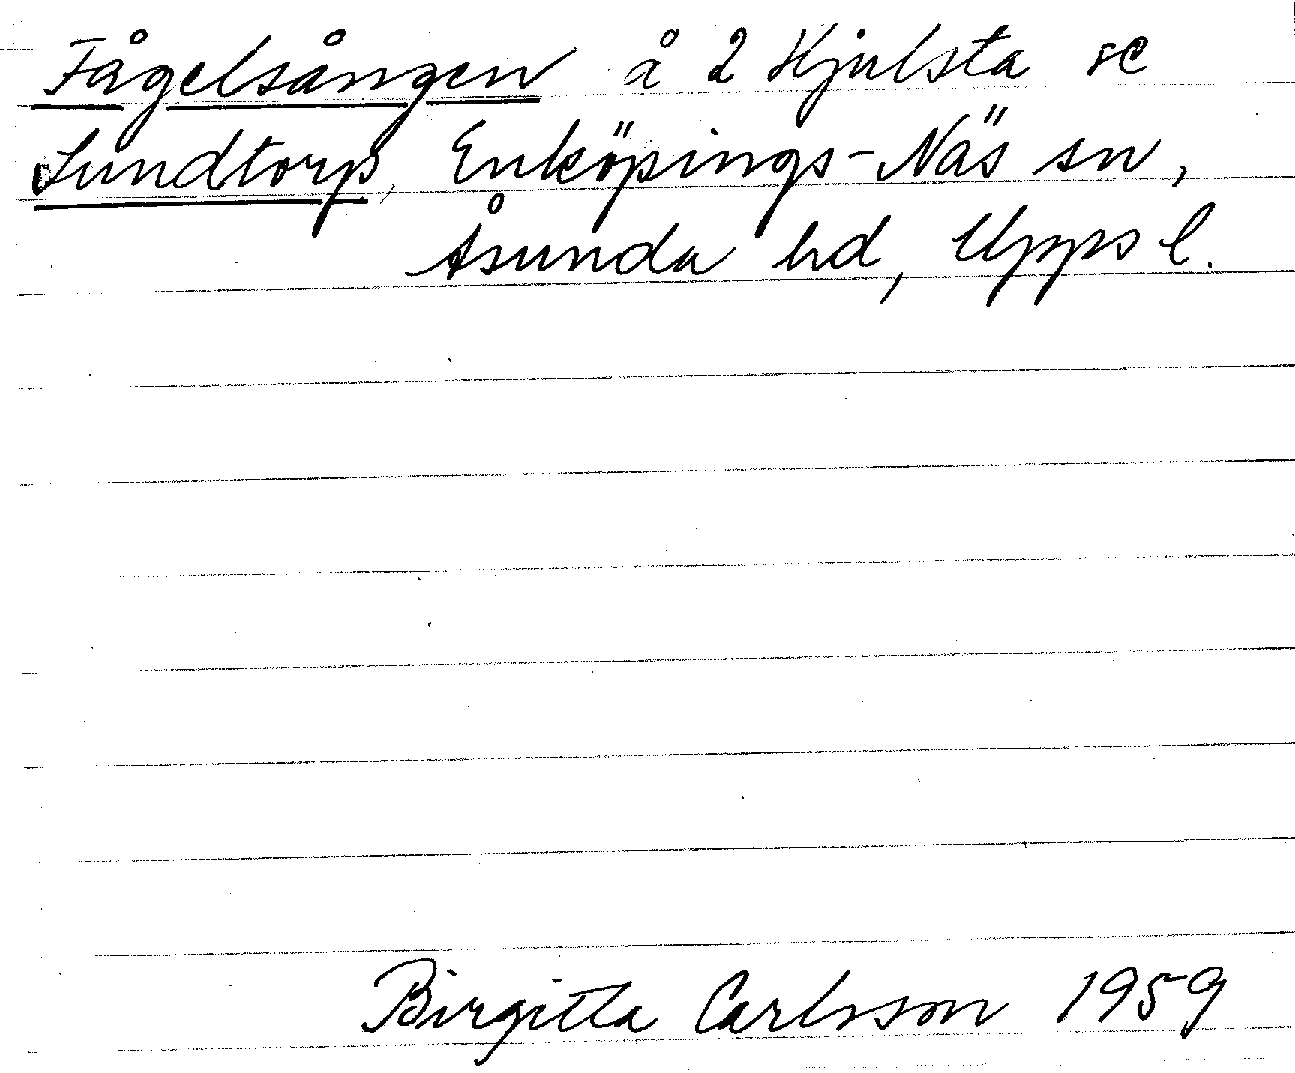 Fågelsången å 2 Hjulsta se
Sundtorp, Enköpings-Näs sn,
Åsunda hd, Upps l.
Birgitta Carlsson 1959